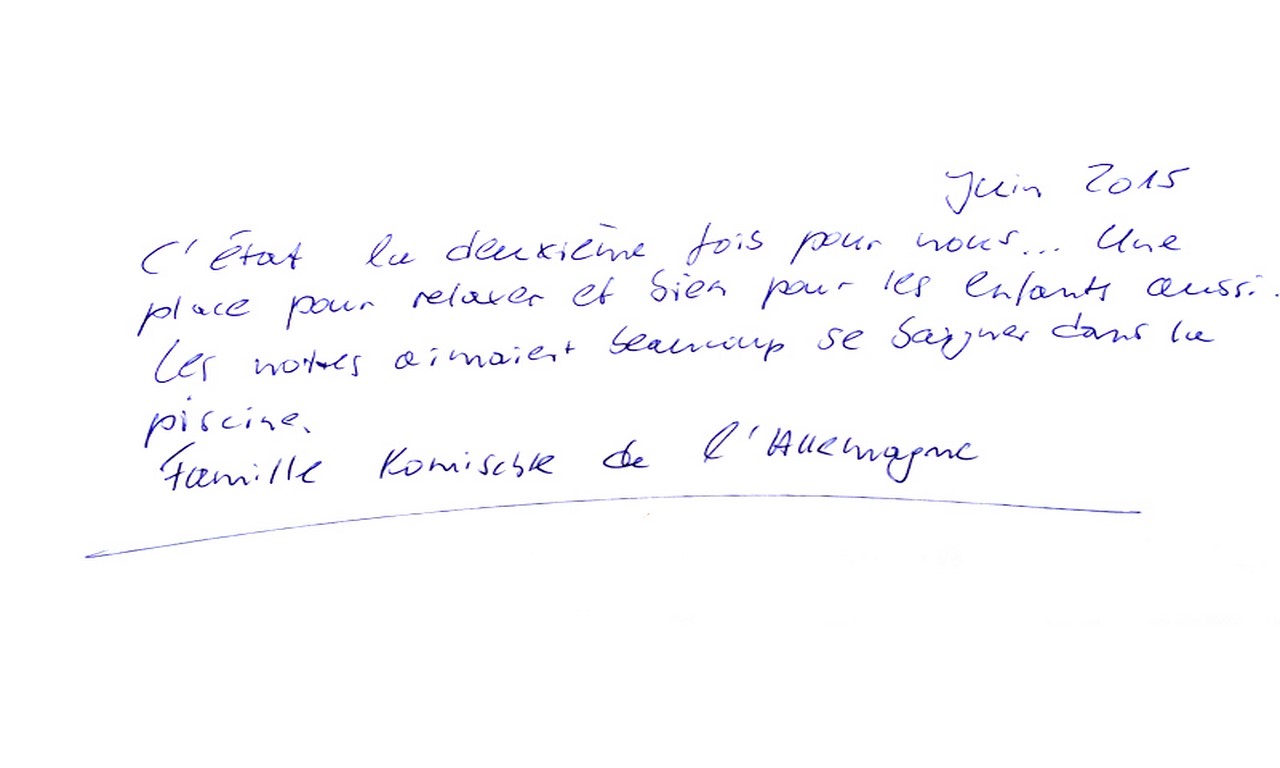 Juin 2015
C'était la deuxième fois pour nous... Une
place pour relaxer et bien pour les enfants aussi.
Les notres aimaient beaucoup se baigner dans la
piscine.
Famille Komischke de l'Allemagne